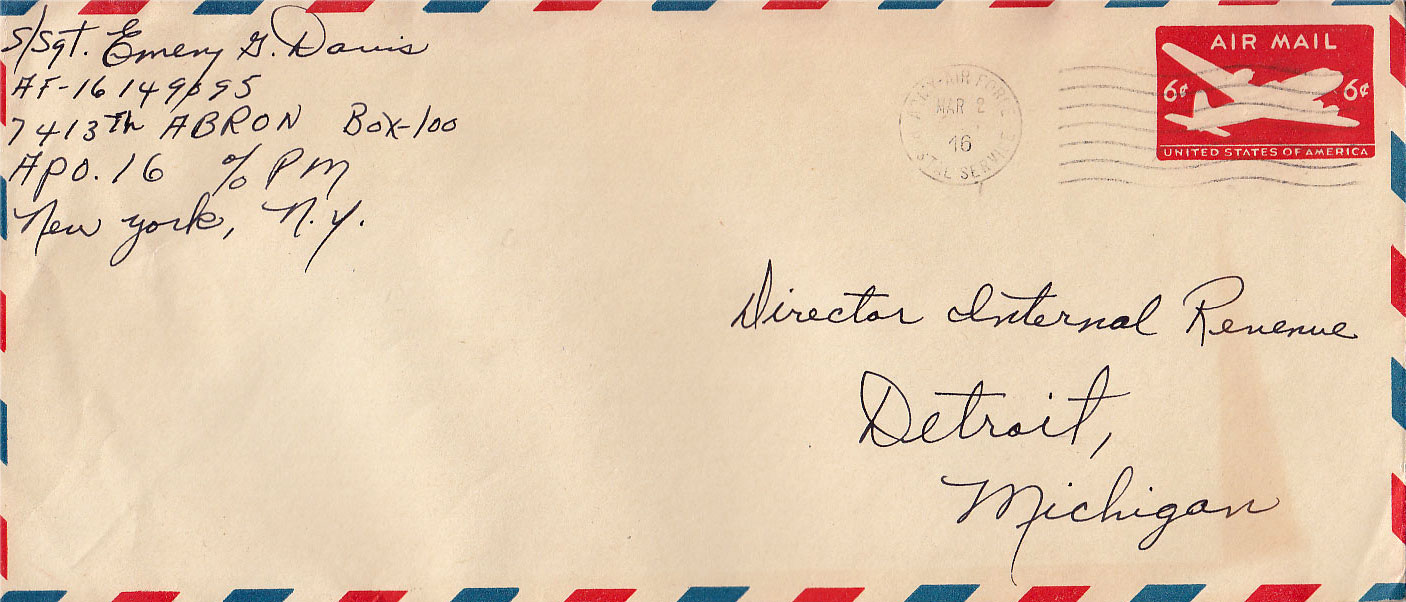 S/Sgt. Emery G. Davis
AF-16149095
7413Th ABRON Box-100
APO. 16 % PM
New York, N.Y.
ARMY-AIR FORCE
MAR 2
16
POSTAL SERVICE
AIR MAIL
6¢ 6¢
UNITED STATES OF AMERICA
Director Internal Revenue
Detroit,
Michigan